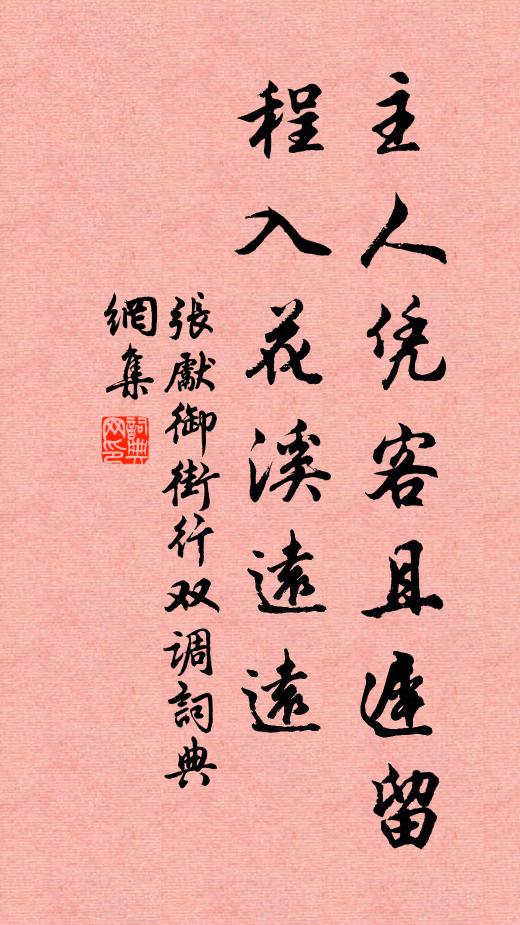 主人凭客且遲留
程入花溪遠遠
張獻御街行双调詞典
網集
詞典网印